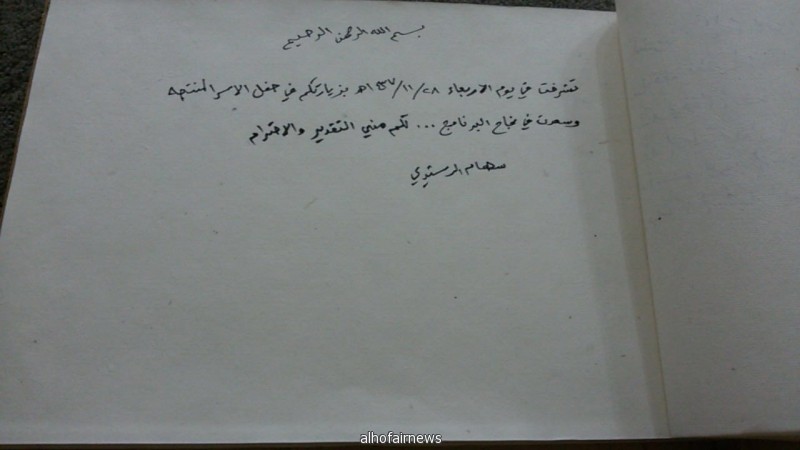 بسم الله الرحمن الرحيم
تشرفت في يوم الاربعاء ٢٨/١١/ بزيارتكم في حفل الاسر المنتجه
وسعدت في نجاح البرنامج ... لكم مني التقدير والاحترام
سهام
alhofairnews